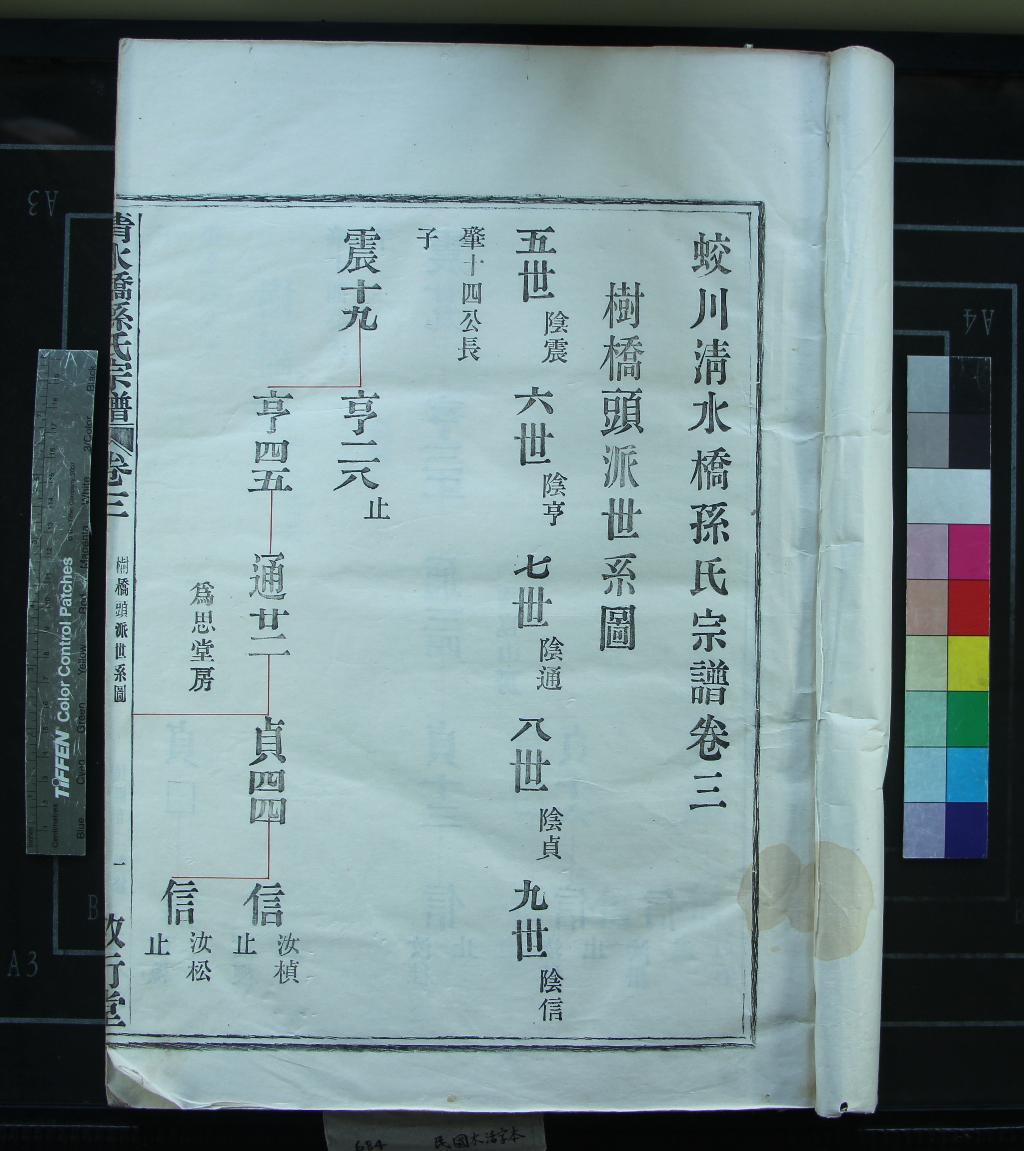 蛟川清水橋孫氏宗譜卷三
樹橋頭派世系圖
五世 陰震 六世 陰亨 七世 陰通 八世 陰貞 九世 陰信
肇十四公長
子
震十九 亨二八 止
亨四五 通廿二 貞四四 信 汝楨 止
爲思堂房
信 汝松 止
清水橋孫氏宗譜 卷三 樹橋頭派世系圖 一 敦行堂
TIFFEN Color Control Patches
Blue Cyan Green Yellow Red Magenta White 3/Color Black
A3
A4
A3
B
684 民國木活字本